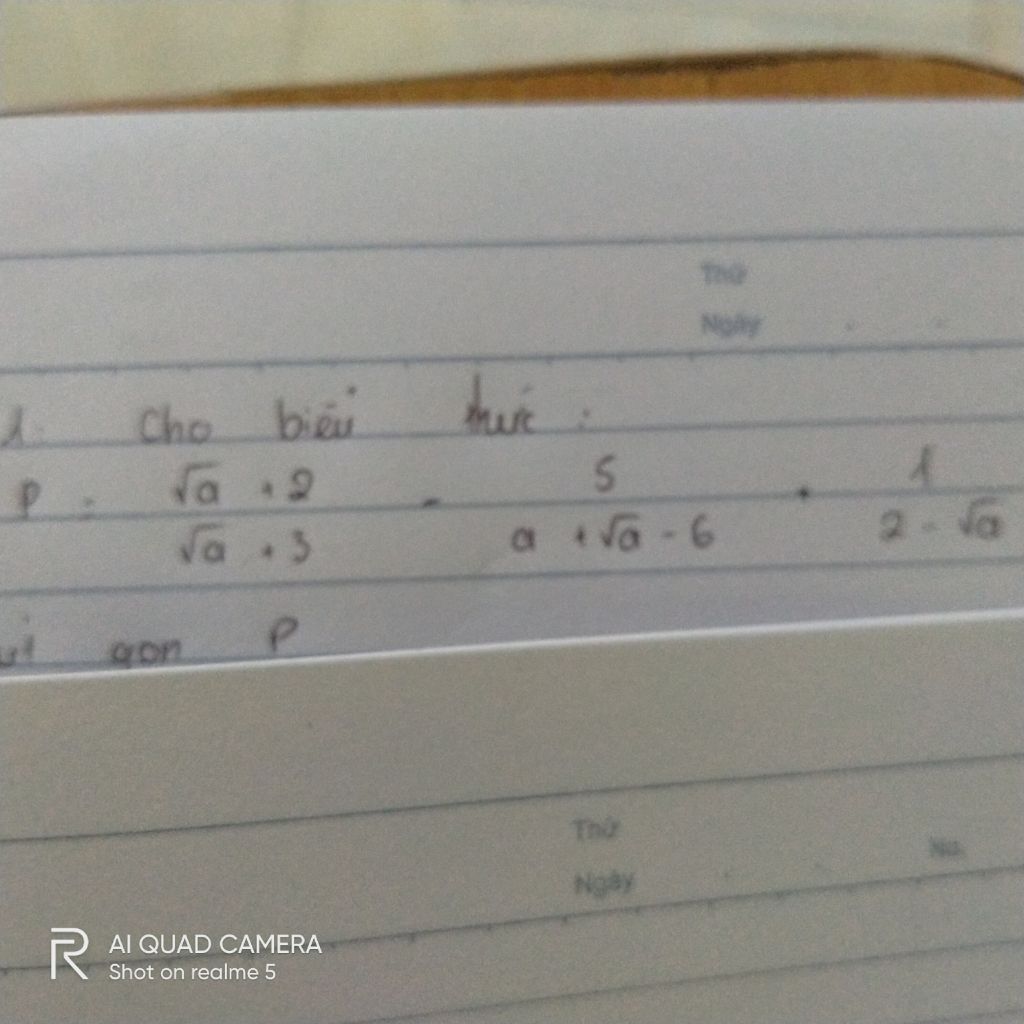 Thứ
Ngày
1. Cho biểu thức :
P = √a + 2 / √a + 3 - 5 / a + √a - 6 + 1 / 2 - √a
gọn P
Thứ
No.
Ngày
R AI QUAD CAMERA
Shot on realme 5